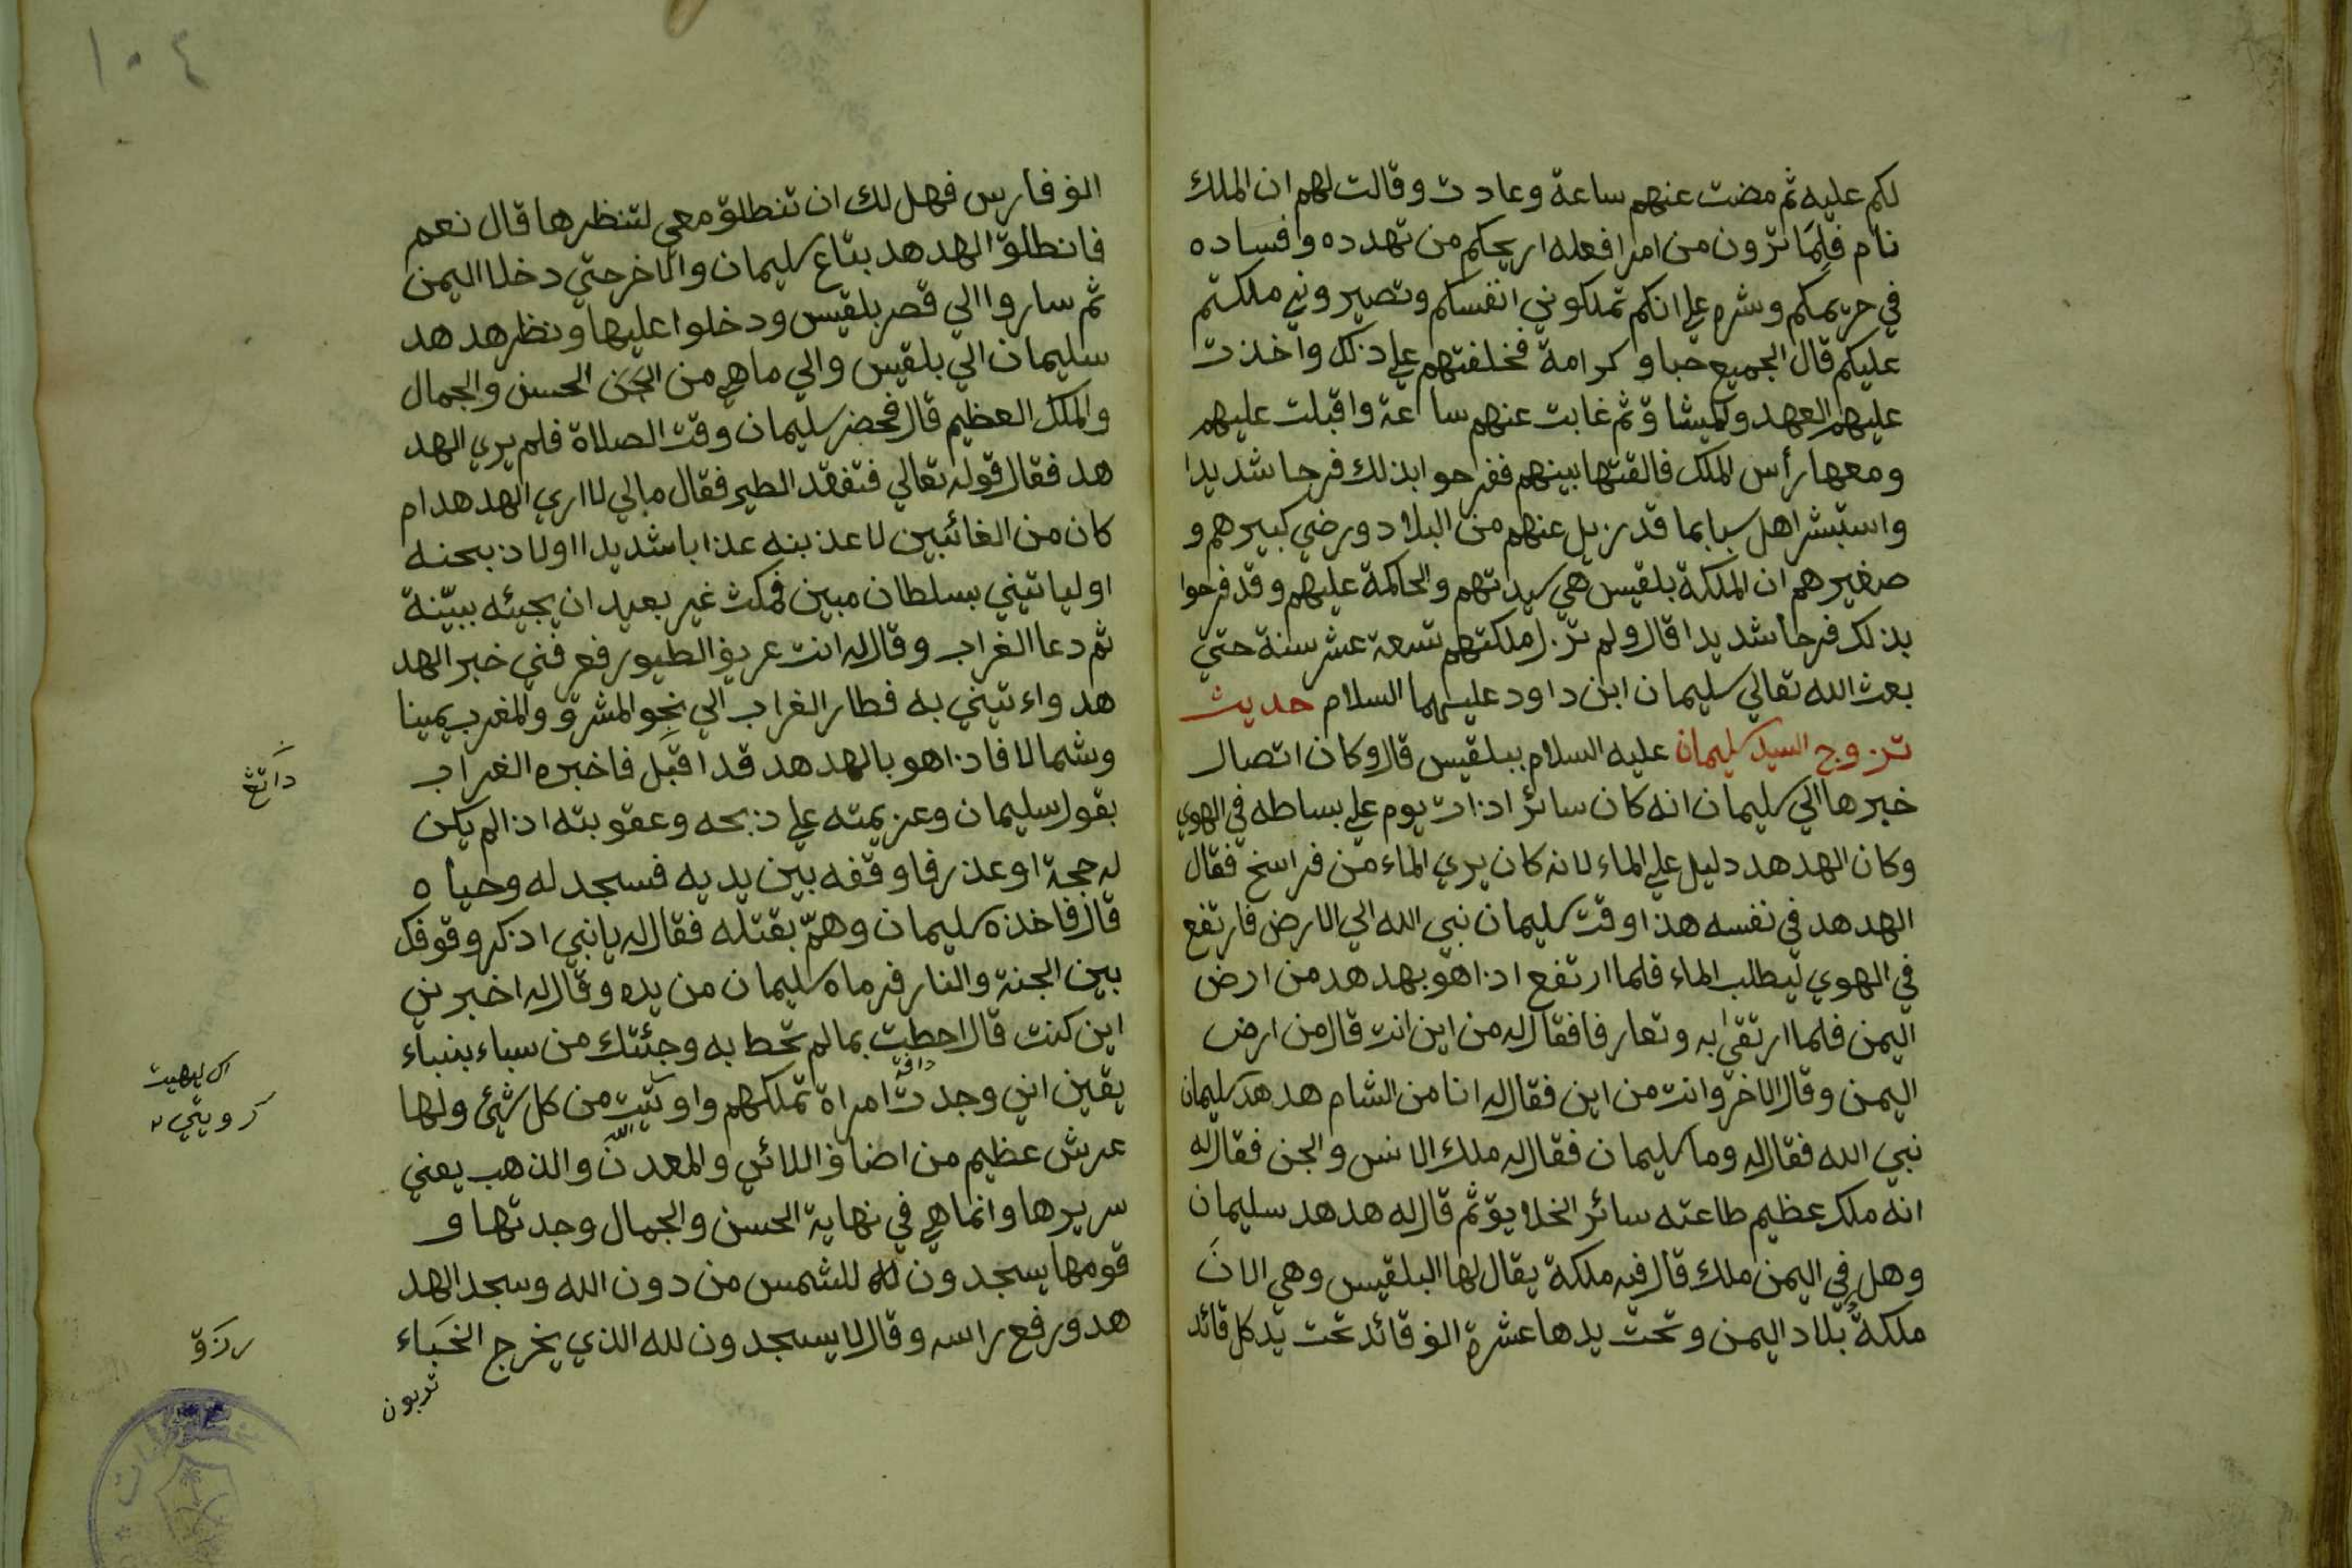 لكم عليه ثم مضت عنهم ساعة وعادت وقالت لهم ان الملك
نام فلما ترون من امر افعله اريحكم من تهدده وافساده
في حريمكم وشره علي انكم تملكوني انفسكم وتصيروني ملكتم
عليكم قال الجميع حبا وكرامة فخلفتهم علي ذلك واخذت
عليهم العهد والميثاق ثم غابت عنهم ساعة واقبلت عليهم
ومعها رأس الملك فالقتها بينهم ففرحوا بذلك فرحا شديدا
واستبشر اهل سبا بما قد زيل عنهم من البلاد ورضي كبيرهم و
صغيرهم ان الملكة بلقيس هي سيدتهم والحاكمة عليهم وقد فرحوا
بذلك فرحا شديدا قال ولم تزل ملكتهم تسعة عشر سنة حتي
بعث الله تعالي سليمان ابن داود عليهما السلام حديث
تزوج السيد سليمان عليه السلام ببلقيس قال وكان اتصال
خبرها الي سليمان انه كان سائرا ذات يوم علي بساطه في الهوي
وكان الهدهد دليل علي الماء لانه كان يري الماء من فراسخ فقال
الهدهد في نفسه هذا وقت سليمان نبي الله الي الارض فارتفع
في الهوي ليطلب الماء فلما ارتفع اذا هو بهدهد من ارض
اليمن فلما ارتقي به وتعارفا فقال له من اين انت قال من ارض
اليمن وقال الاخر وانت من اين فقال له انا من الشام هدهد سليمان
نبي الله فقال له وما سليمان فقال له ملك الانس والجن فقال له
انه ملك عظيم طاعته سائر الخلايق ثم قال له هدهد سليمان
وهل في اليمن ملك قال فيه ملكة يقال لها البلقيس وهي الان
ملكة بلاد اليمن وتحت يدها عشرة الف قائد تحت يد كل قائد
١٠٤
الف فارس فهل لك ان تنطلق معي لتنظرها قال نعم
فانطلق الهدهد بتاع سليمان والاخر حتي دخلا اليمن
ثم ساروا الي قصر بلقيس ودخلوا عليها ونظر هدهد
سليمان الي بلقيس والي ما هي من الحسن والجمال
والملك العظيم قال فحضر سليمان وقت الصلاة فلم يري الهد
هد فقال قوله تعالي فتفقد الطير فقال مالي لا اري الهدهد ام
كان من الغائبين لاعذبنه عذابا شديدا اولاذبحنه
اوليا تيني بسلطان مبين فمكث غير بعيد ان يجيئه ببيّنة
ثم دعا الغراب وقال له انت عريف الطيور فعرفني خبر الهد
هد واءتيني به فطار الغراب الي نحو المشرق والمغرب يمينا
وشمالا فاذا هو بالهدهد قد اقبل فاخبره الغراب
بقول سليمان وعزيمته علي ذبحه وعقوبته اذا لم يكن
له حجة او عذر فاوقفه بين يديه فسجد له وحياه
قال فاخذه سليمان وهمّ بقتله فقال له يا نبي اذكر وقوفك
بين الجنة والنار فرماه سليمان من يده وقال له اخبرني
اين كنت قال احطت بما لم تحط به وجئتك من سباء بنباء
يقين اني وجدت امراة تملكهم واوتيت من كل شيئ ولها
عرش عظيم من اضاف اللائي والمعدن والذهب يعني
سريرها وانما هي في نهاية الحسن والجمال وجدتها و
قومها يسجدون للشمس من دون الله وسجد الهد
هد ورفع راسه وقال لا يسجدون لله الذي يخرج الخباء